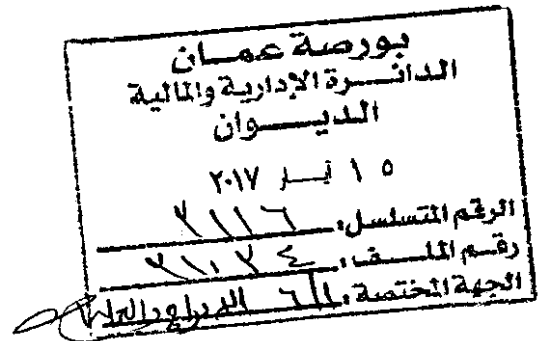 بورصة عمان
الدائرة الإدارية والمالية
الديوان
١٥ أيار ٢٠١٧
الرقم المتسلسل:
رقم الملف:
الجهة المختصة: